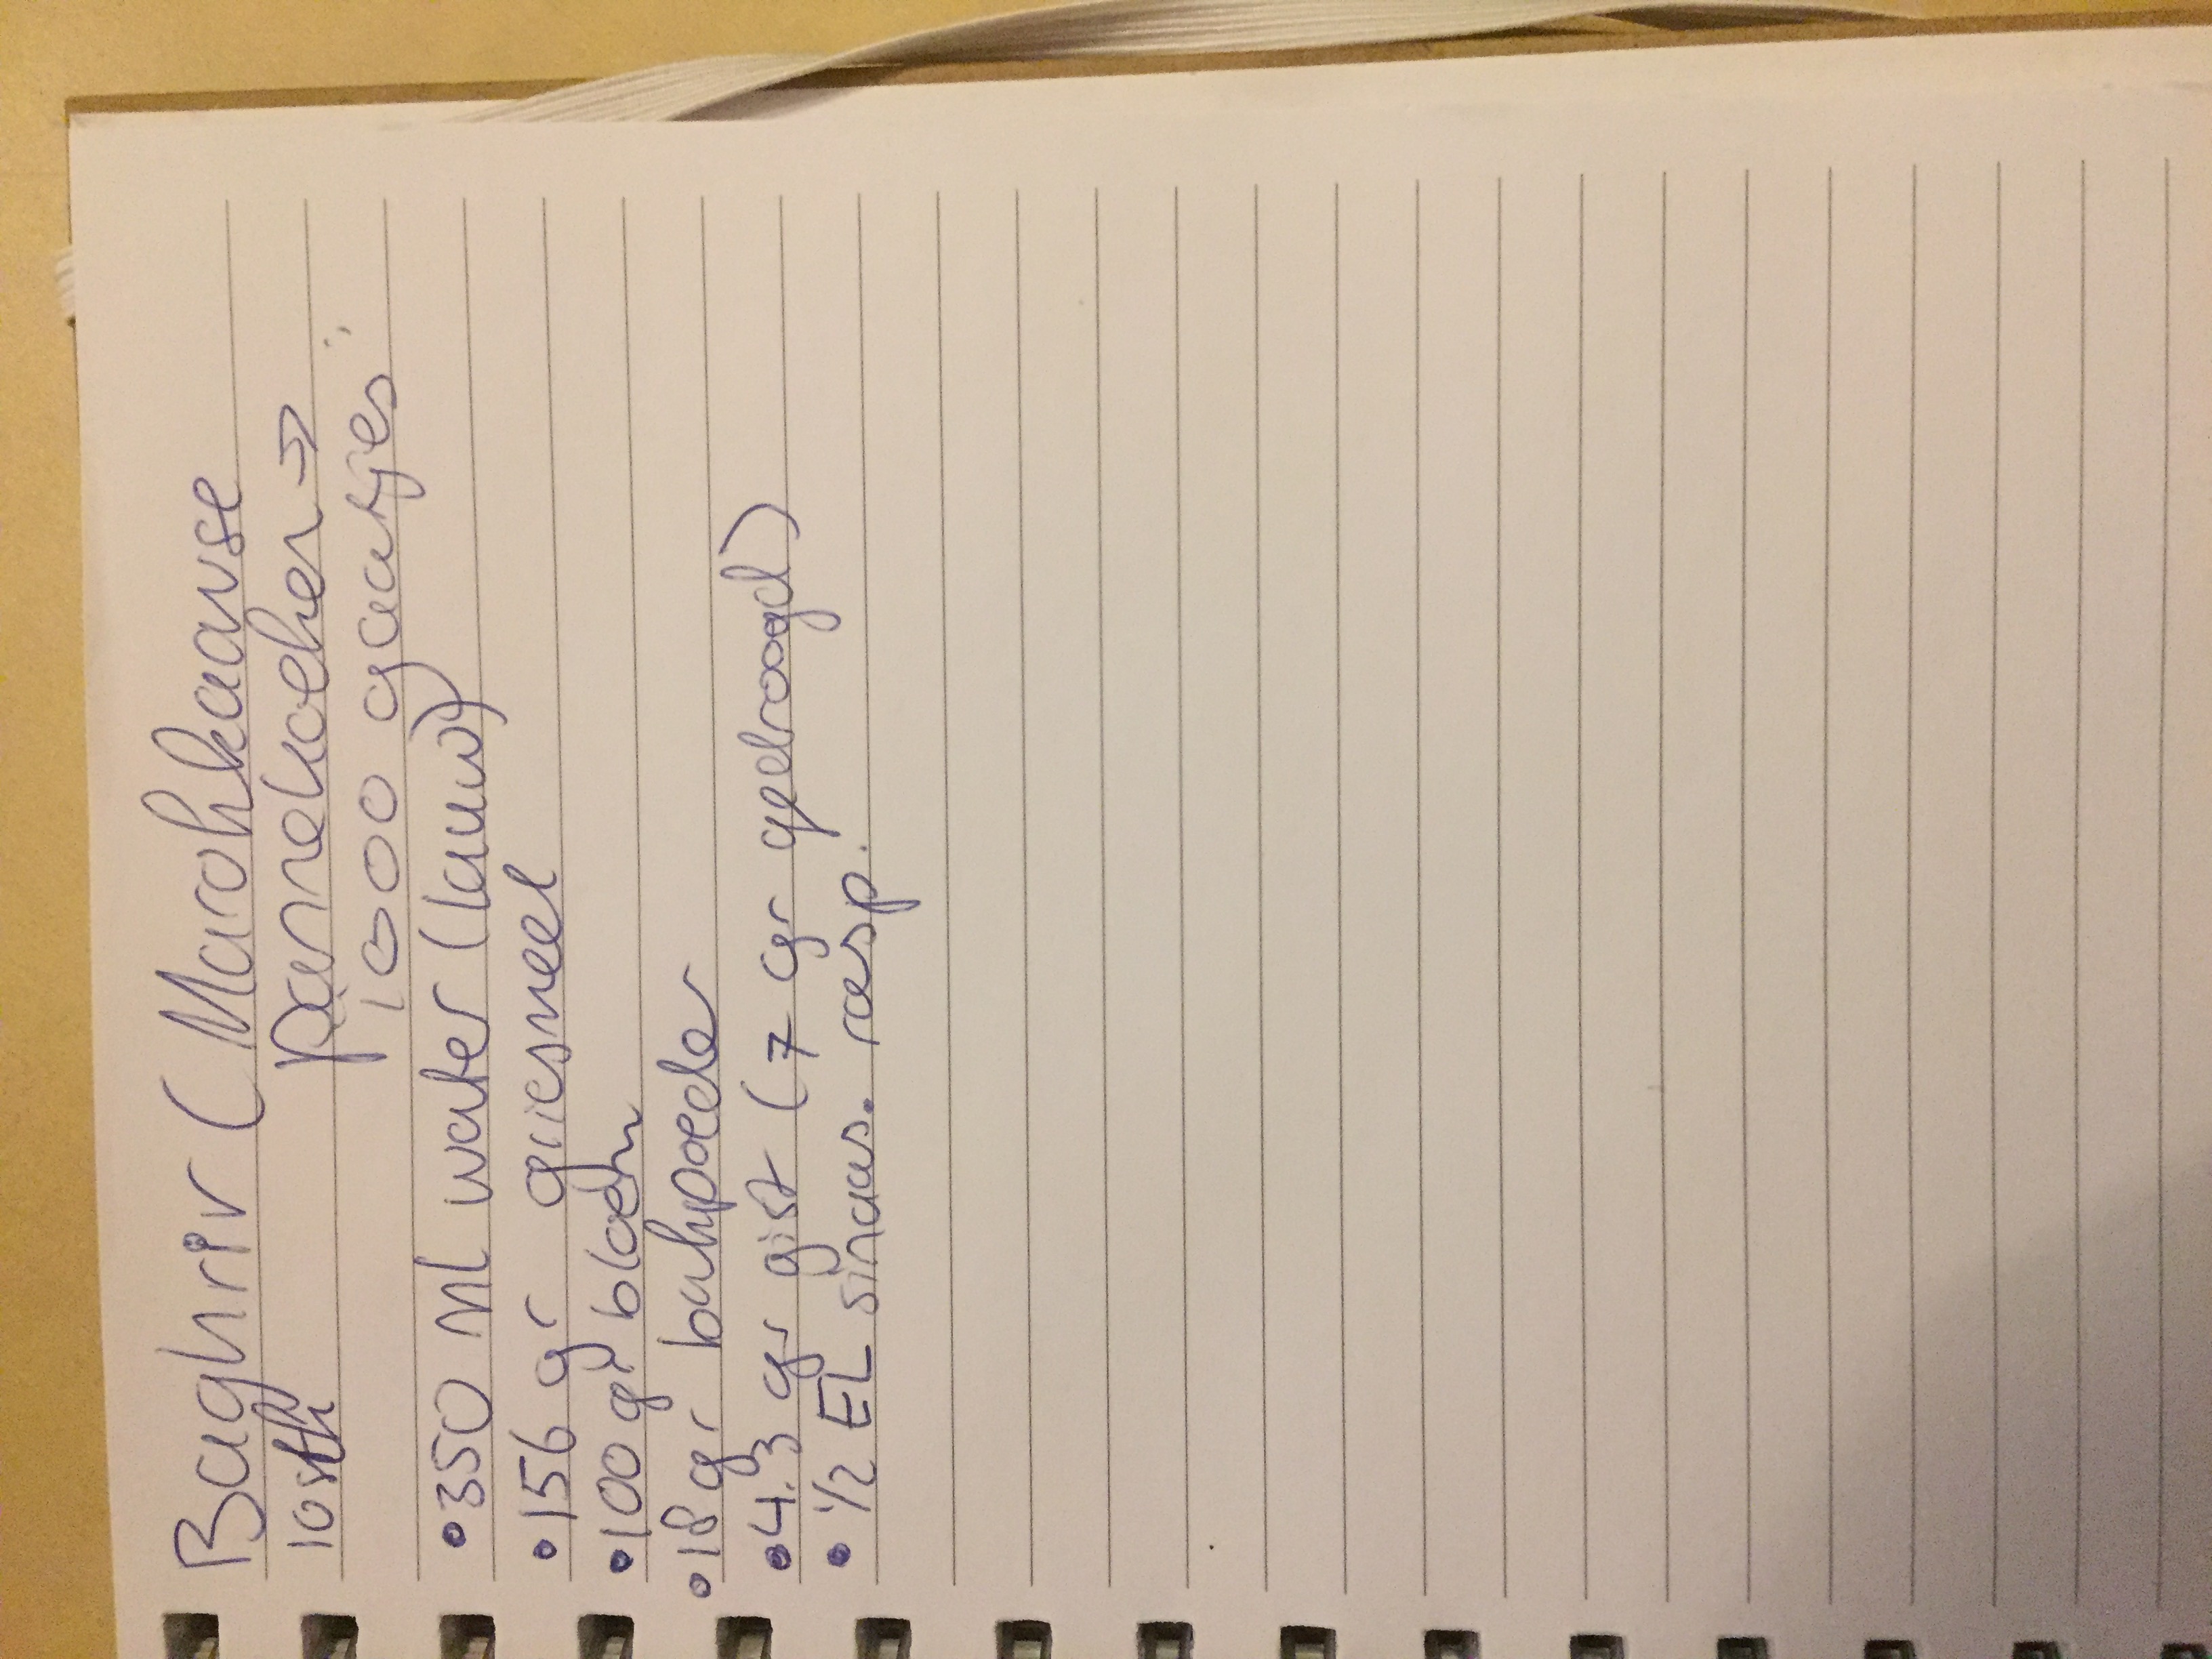 Baghrir (Marokkaanse
10 stk pannekoeken →
1000 gaatjes
• 350 ml water (lauw)
• 156 gr griesmeel
• 100 gr bloem
• 18 gr bakpoeder
• 4.3 gr gist (7 gr gedroogd)
• 1/2 EL sinaas. rasp.